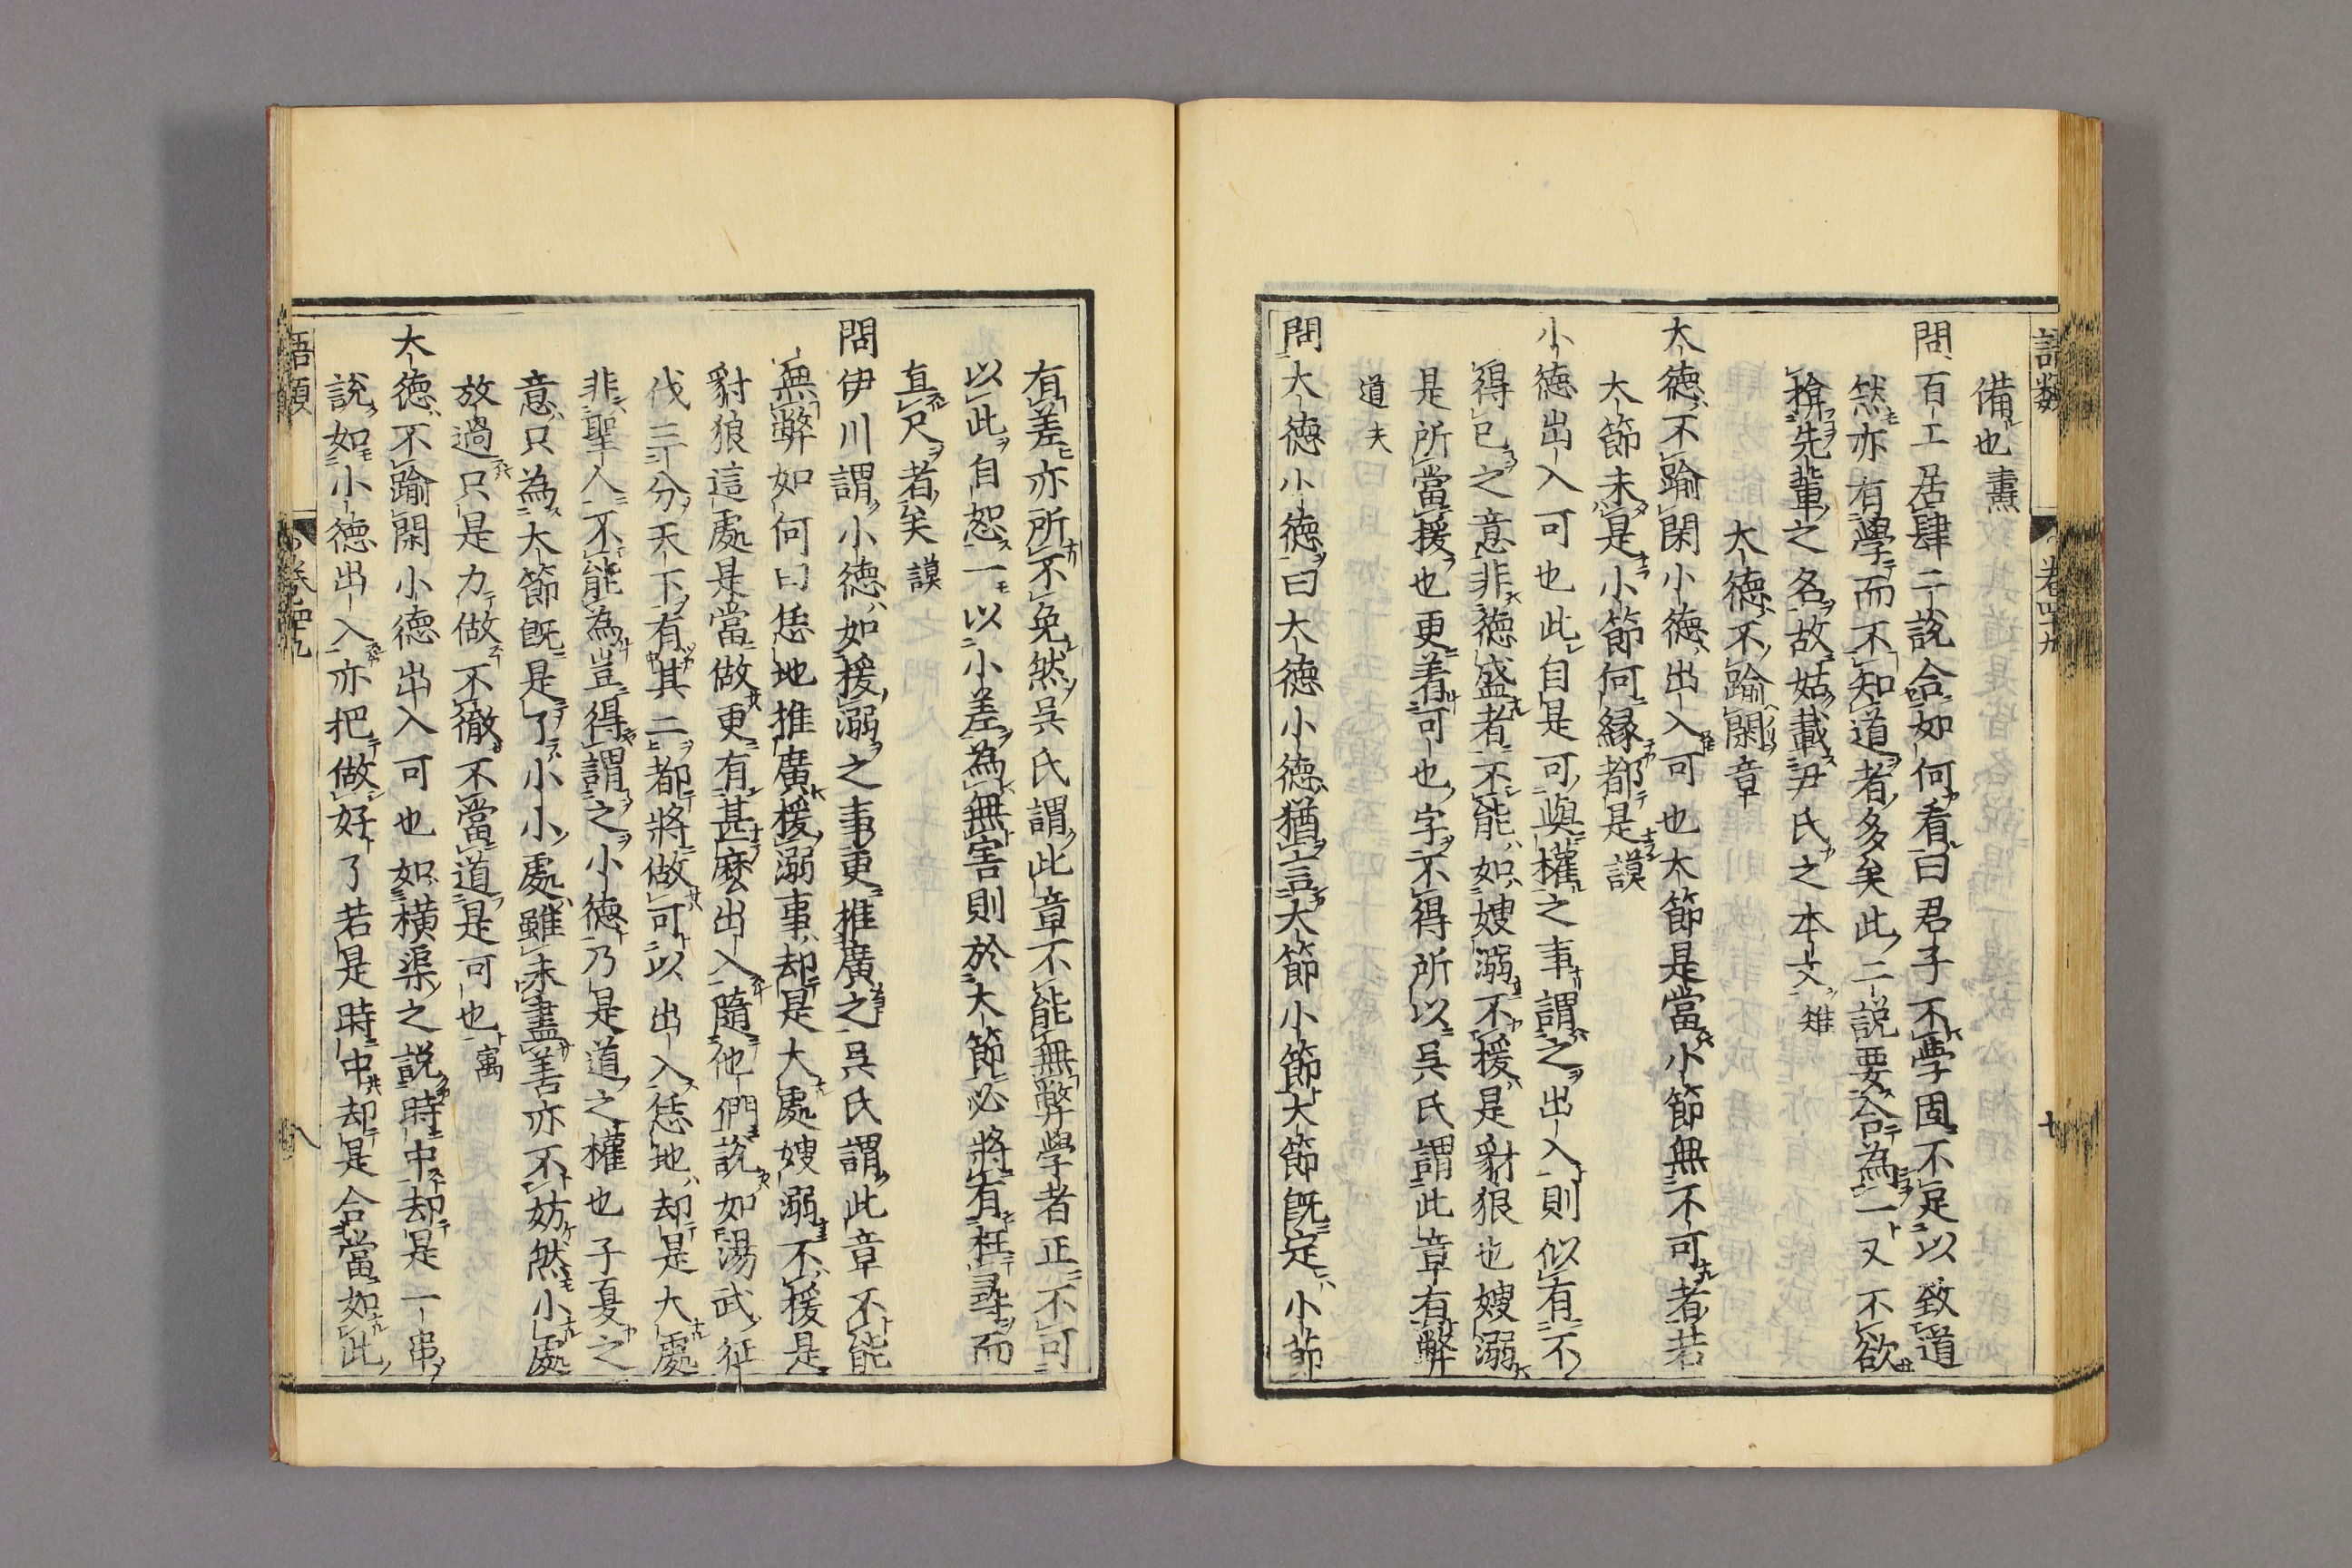 語類
卷四十九
七
備也燾
問百工居肆二說合如何看曰君子不學固不足以致道
然亦有學而不知道者多矣此二說要合為一又不欲
揜先輩之名故姑載尹氏之本文雉
大德不踰閑章
大德不踰閑小德出入可也大節是當小節無不可者若
大節未是小節何緣都是謨
小德出入可也此自是可與權之事謂之出入則似有不
得已之意非德盛者不能如嫂溺不援是豺狼也嫂溺
是所當援也更着可也字不得所以吳氏謂此章有弊
道夫
問大德小德曰大德小德猶言大節小節大節既定小節
有差亦所不免然吳氏謂此章不能無弊學者正不可
以此自恕一以小差為無害則於大節必將有枉尋而
直尺者矣謨
問伊川謂小德如援溺之事更推廣之吳氏謂此章不能
無弊如何曰恁地推廣援溺事却是大處嫂溺不援是
豺狼這處是當做更有甚麼出入隨他們說如湯武征
伐三分天下有其二都將做可以出入恁地却是大處
非聖人不能為豈得謂之小德乃是道之權也子夏之
意只為大節既是了小小處雖未盡善亦不妨然小處
放過只是力做不徹不當道是可也㝢
大德不踰閑小德出入可也如橫渠之說時中却是一串
說如小德出入亦把做好了若是時中却是合當如此
語類
卷四十九
八